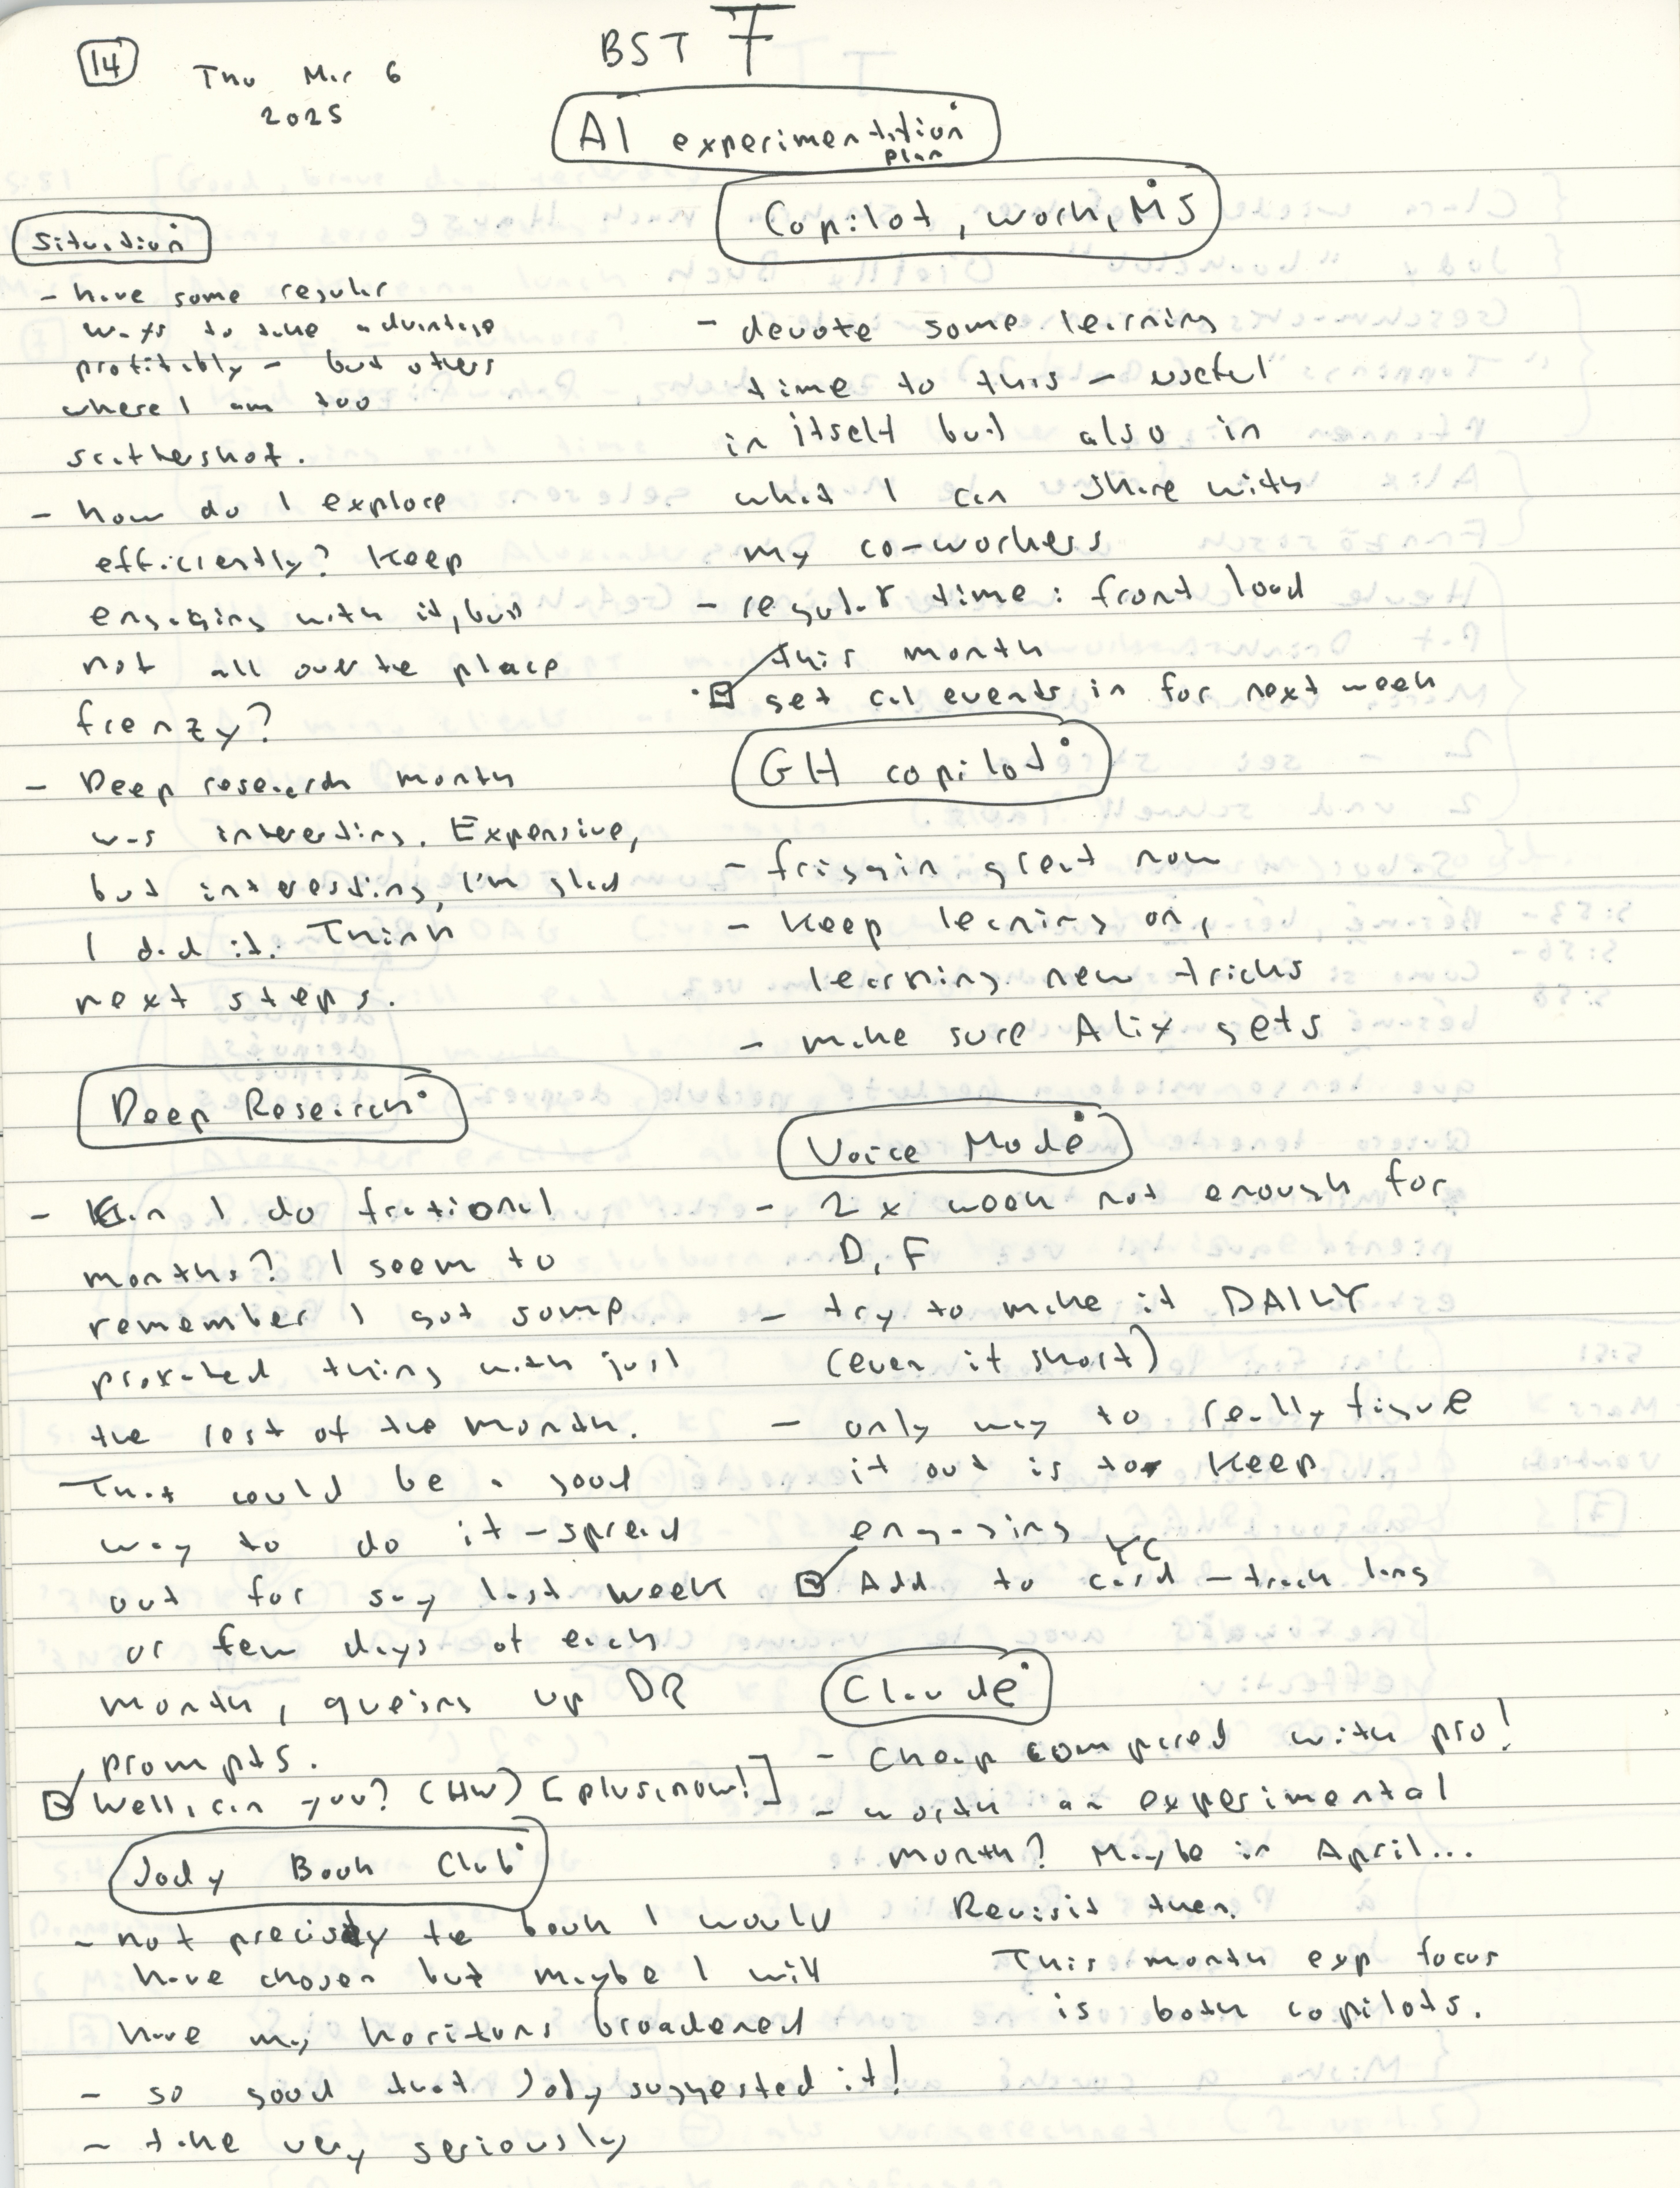 14
Thu Mar 6
2025
BST 7
AI experimentation
plan
Situation
- have some regular
ways to take advantage
profitably - but others
where I am too
scattershot.
- how do I explore
efficiently? Keep
engaging with it, but
not all over the place
frenzy?
- Deep research month
was interesting. Expensive,
but interesting, I'm glad
I did it. Think
next steps.
Deep Research
- Can I do fractional
months? I seem to
remember I got some
prorated thing with just
the rest of the month.
That could be a good
way to do it - spread
out for say last week
or few days of each
month, queing up DR
prompts.
☑ Well, can you? (HW) [plus, now!]
Jody Book Club
- not precisely the book I would
have chosen but maybe I will
have my horizons broadened
- so good that Jody suggested it!
- take very seriously
Copilot, work, MS
- devote some learning
time to this - useful
in itself but also in
what I can share with
my co-workers
- regular time: front load
this month
☑ get cal events in for next week
GH copilot
- friggin great now
- Keep leaning on,
learning new tricks
- make sure Alix gets
Voice Mode
- 2x week not enough for
D, F
- try to make it DAILY
(even if short)
- only way to really figure
it out is to keep
engaging
YC
☑ Add to card - track lang
Claude
- Cheap compared with pro!
- worth an experimental
month? Maybe in April...
Revisit then.
This month exp focus
is both copilots.